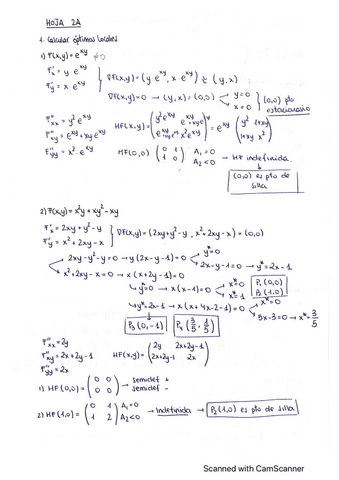 HOJA 2A
1. Calcular óptimos locales
1) F(x,y) = e^xy ≠0
F'x = y·e^xy
F'y = x·e^xy
∇F(x,y) = (y·e^xy, x·e^xy) (y, x)
∇F(x,y)=0 → (y,x)=(0,0) y=0 x=0 (0,0) pto estacionario
F''xx = y² e^xy
F''xy = e^xy + xy e^xy
F''yy = x²·e^xy
HF(x,y) = (y² e^xy e^xy+xye^xy e^xy+ x² e^xy) = e^xy (y² 1+xy 1+xy x²)
HF(0,0) (0 1 1 0) A₁=0 A₂<0 → HF indefinida
(0,0) es pto de silla
2) F(x,y) = x²y + xy² - xy
F'x = 2xy + y² - y
F'y = x² + 2xy - x
∇F(x,y) = (2xy+y²-y, x²+2xy-x) = (0,0)
2xy-y²-y=0 → y(2x-y-1)=0 y*=0
2x-y-1=0 → y*=2x-1
x²+2xy-x=0 → x(x+2y-1)=0
y*=0 → x(x-1)=0 x*=0 x*=1 P₁(0,0) P₂(1,0)
y*=2x-1 → x(x+4x-2-1)=0 x*=0
5x-3=0 → x*=3/5
P₃(0,-1) P₄(3/5, 1/5)
F''xx = 2y
F''xy = 2x+2y-1
F''yy = 2x
HF(x,y) = (2y 2x+2y-1 2x+2y-1 2x)
1) HF(0,0) = (0 0 0 0) → semidef + → semidef -
2) HF(1,0) = (0 1 1 2) A₁=0 A₂<0 → Indefinida → P₂(1,0) es pto de silla
Scanned with CamScanner